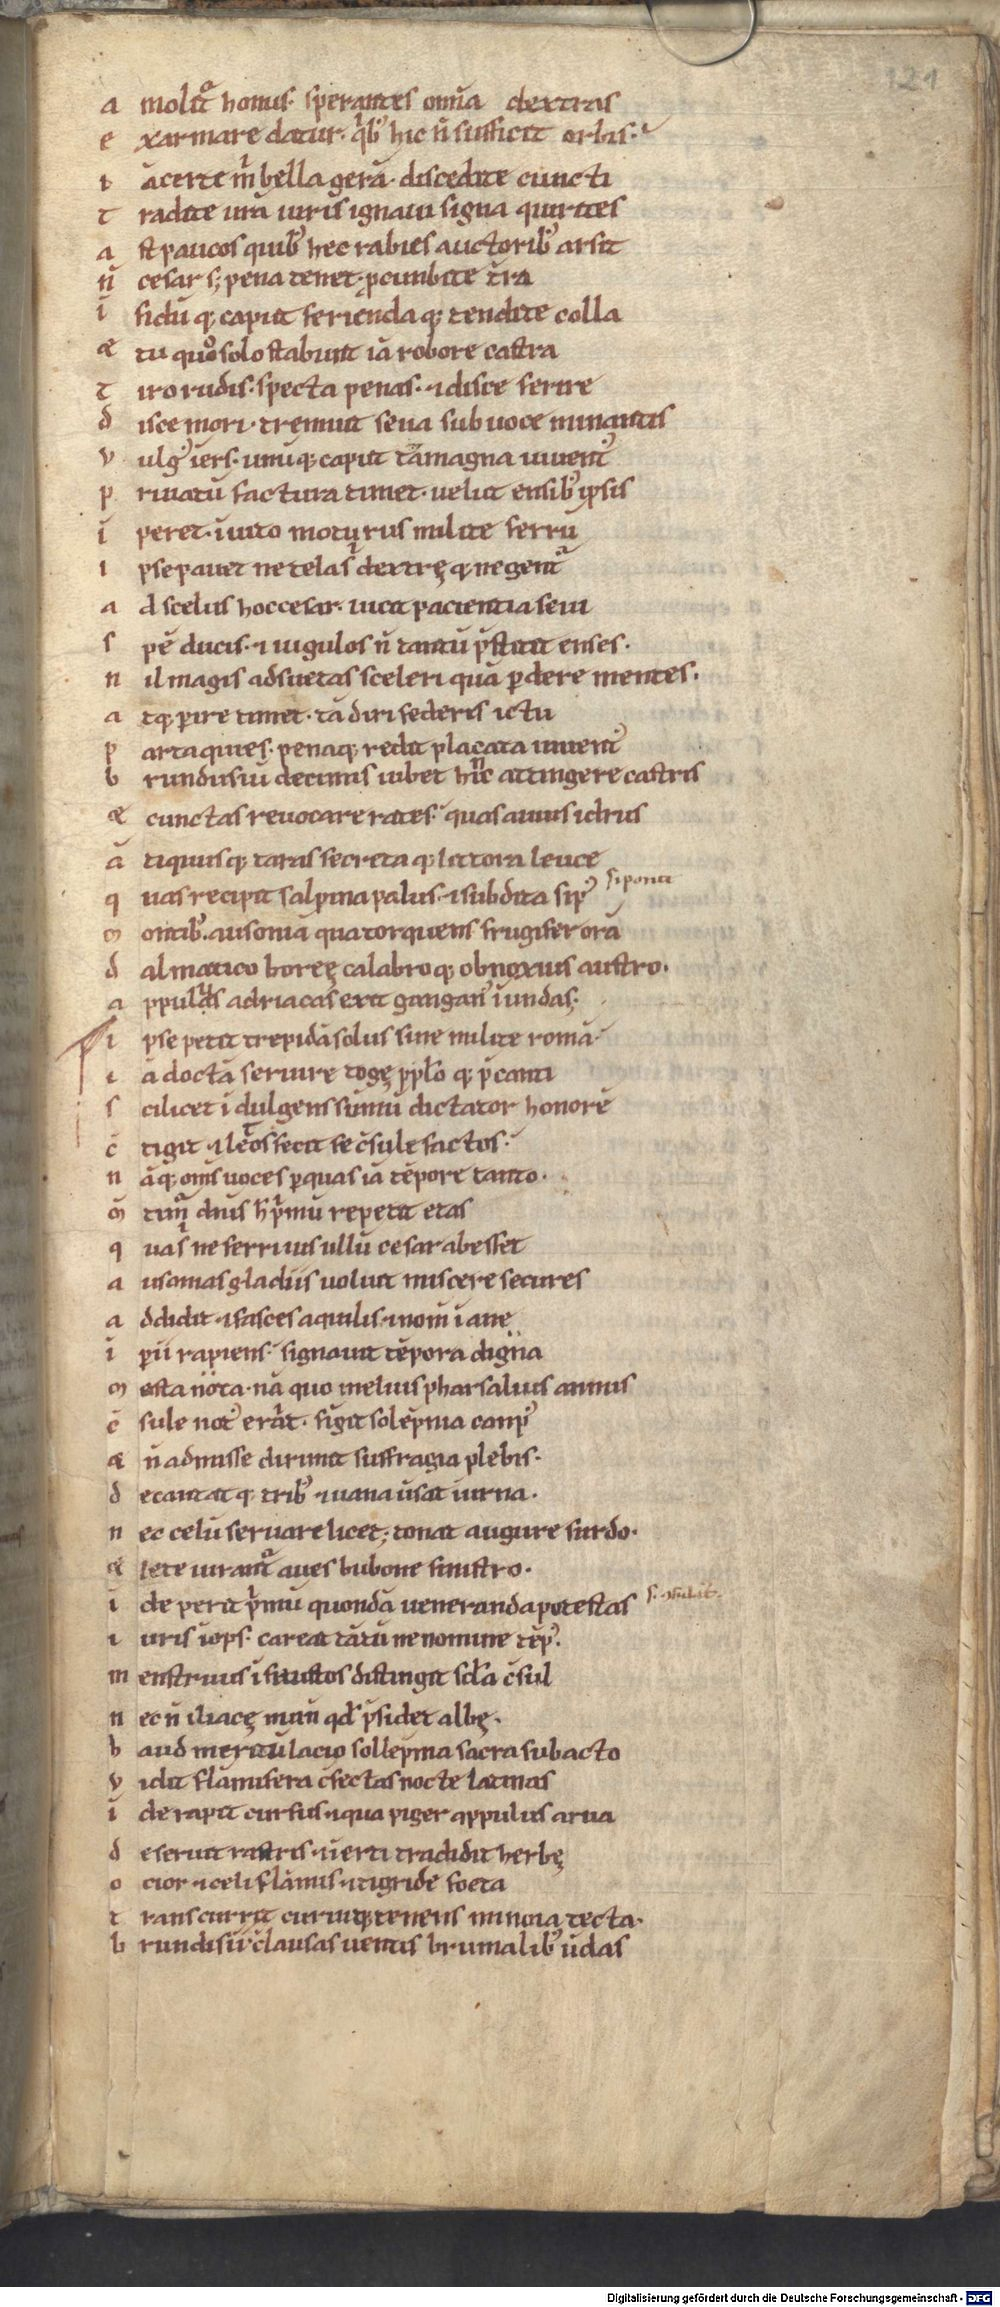 121
a molitᵃ homıs· sperantes omıa dextras
e xarmare datur· qⁱb; hic n̄ sufficit orbis·
i ā certe mⁱ bella gerā· discedite cuncti
t radite urā uiris ignaui signa quirites
a st paucos quib; hec rabies auctorib; arsit
n̄ cesar s; pena tenet· ꝓcumbite tr̄a
i fidū q; caput feriendaq; tendite colla
æ tu quo solo stabunt iā robore castra
t iro rudis· specta penas· ⁊disce ferire
d isce mori· tremuit seua sub uoce minantis
v ulg᾽ iers· unūq; caput tā magna iuuent᾽
p riuatū factura timet· uelut ensib; ipsis
i peret· īuito moturus milite ferrū
i pse pauet ne tela sⁱ dextrę q; negentᵃ
a d scelus hoc cesar· uicit paciencia seui
s pē ducis· ⁊ iugulos n̄ tantū p̄stitit enses·
n il magis adsuetas sceleri quā ꝑdere mentes·
a tq; ꝑire timet· tā diri federis ictu
p arta quies· penaq; redit placata iuuent᾽
b rundusiū decimis iubet hīc attingere castris
æ cunctas reuocare rates· quas auius idrus
ā tiquusq; taras secretaq; littora leuce
q uas recipit salpina palus· ⁊subdita sip᾽ siponti
m ontib;· ausoniā qua torquens frugifer orā
d almatico boreę calabroq; obnoxius austro·
a ppulus adriacas exit gangan᾽ ī undas·
i pse petit trepidā solus sine milite romā·
i ā doctā seruire togę ꝑpło q; p̄canti
s cilicet īdulgens summū dictator honorē
c̄ tigit ⁊ letos fecit se c̄sule factos·
n āq; om̄s uoces ꝑ quas iā tēpore tanto·
m̄ timᵃ dn̄is h̄ pⁱmū repetit etas
q uas ne ferri ius ullū cesar abesset
a usonias gladiis uoluit miscere secures
a ddidit ⁊ fasces aquilis· ⁊ nom̄ ī ane
i ꝑii rapiens· signauit tēpora digna
m esta nota· nā quo melius pharsalius annus
c̄ sule not᾽ erit· fīgit solēpnia camp᾽
æ n̄ admisse dirimit suffragia plebis·
d ecantatq; trib; ⁊ uana ūsat urna·
n ec celū seruare licet; tonat augure surdo·
æ lete iurantᵃ aues bubone sinistro·
i de perit pⁱmū quondā ueneranda potestas
i uris iops· careat tātū ne nomine tēp᾽·
m enstruus ī faustos distingit scła c̄sul
n ec n̄ iliacę num̄ qd p̄sidet albę·
h aud meritū lacio sollēpnia sacra subacto
v idit flāmifera c̄fectas nocte latinas
i de rapit cursus· ⁊ qua piger appulus arua
d eseruit rastris· ⁊ īerti tradidit herbę
o cior· ⁊ celi flāmis· ⁊ tigride foeta
t ranscurrit curuiq; tenens minoia tecta·
b rundisii· clausas uentis brumalib; ūdas
Digitalisierung gefördert durch die Deutsche Forschungsgemeinschaft - DFG